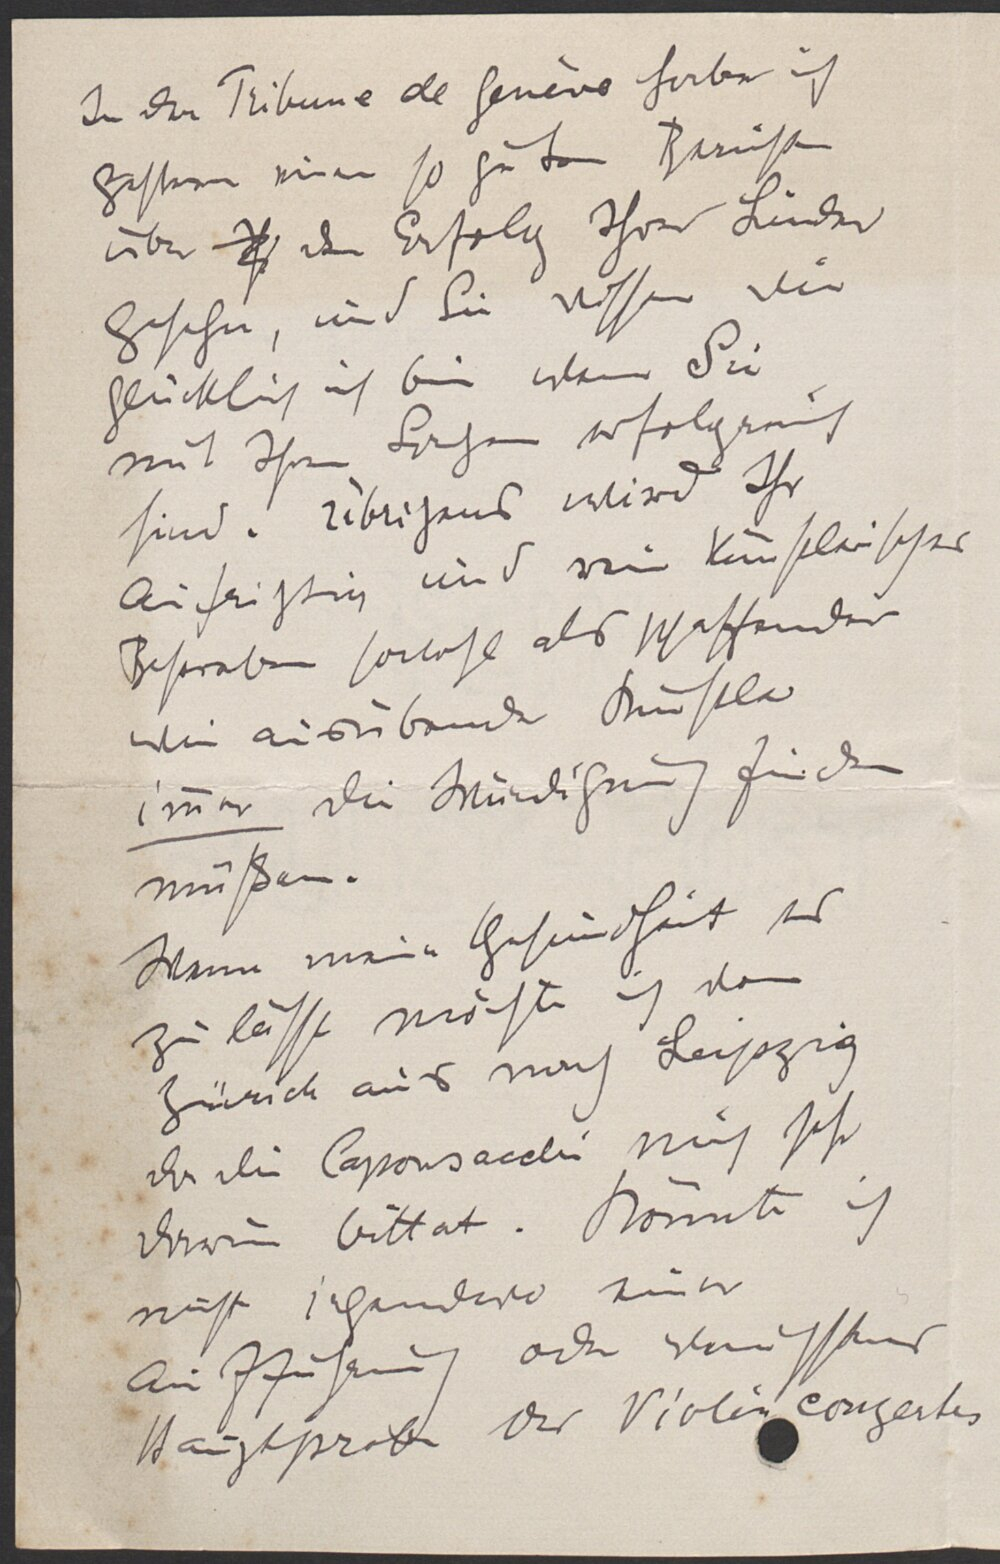 In der Tribune de Genève habe ich
gestern einen so guten Bericht
über den Erfolg Ihrer Lieder
gesehen, und Sie wissen wie
glücklich ich bin wenn Sie
mit Ihren Sachen erfolgreich
sind. Übrigens wird Ihr
aufrichtig und rein künstlerisches
Bestreben sowohl als schaffender
wie ausübender Künstler
im̅er die Würdigung finden
müßen.
Wenn meine Gesundheit es
zu lässt möchte ich von
Zürich aus nach Leipzig
da die Caponsacchi mich sehr
darum bittet. Könnte ich
nicht irgendwo einer
Aufführung oder wenigstens
Hauptprobe des Violinconzertes